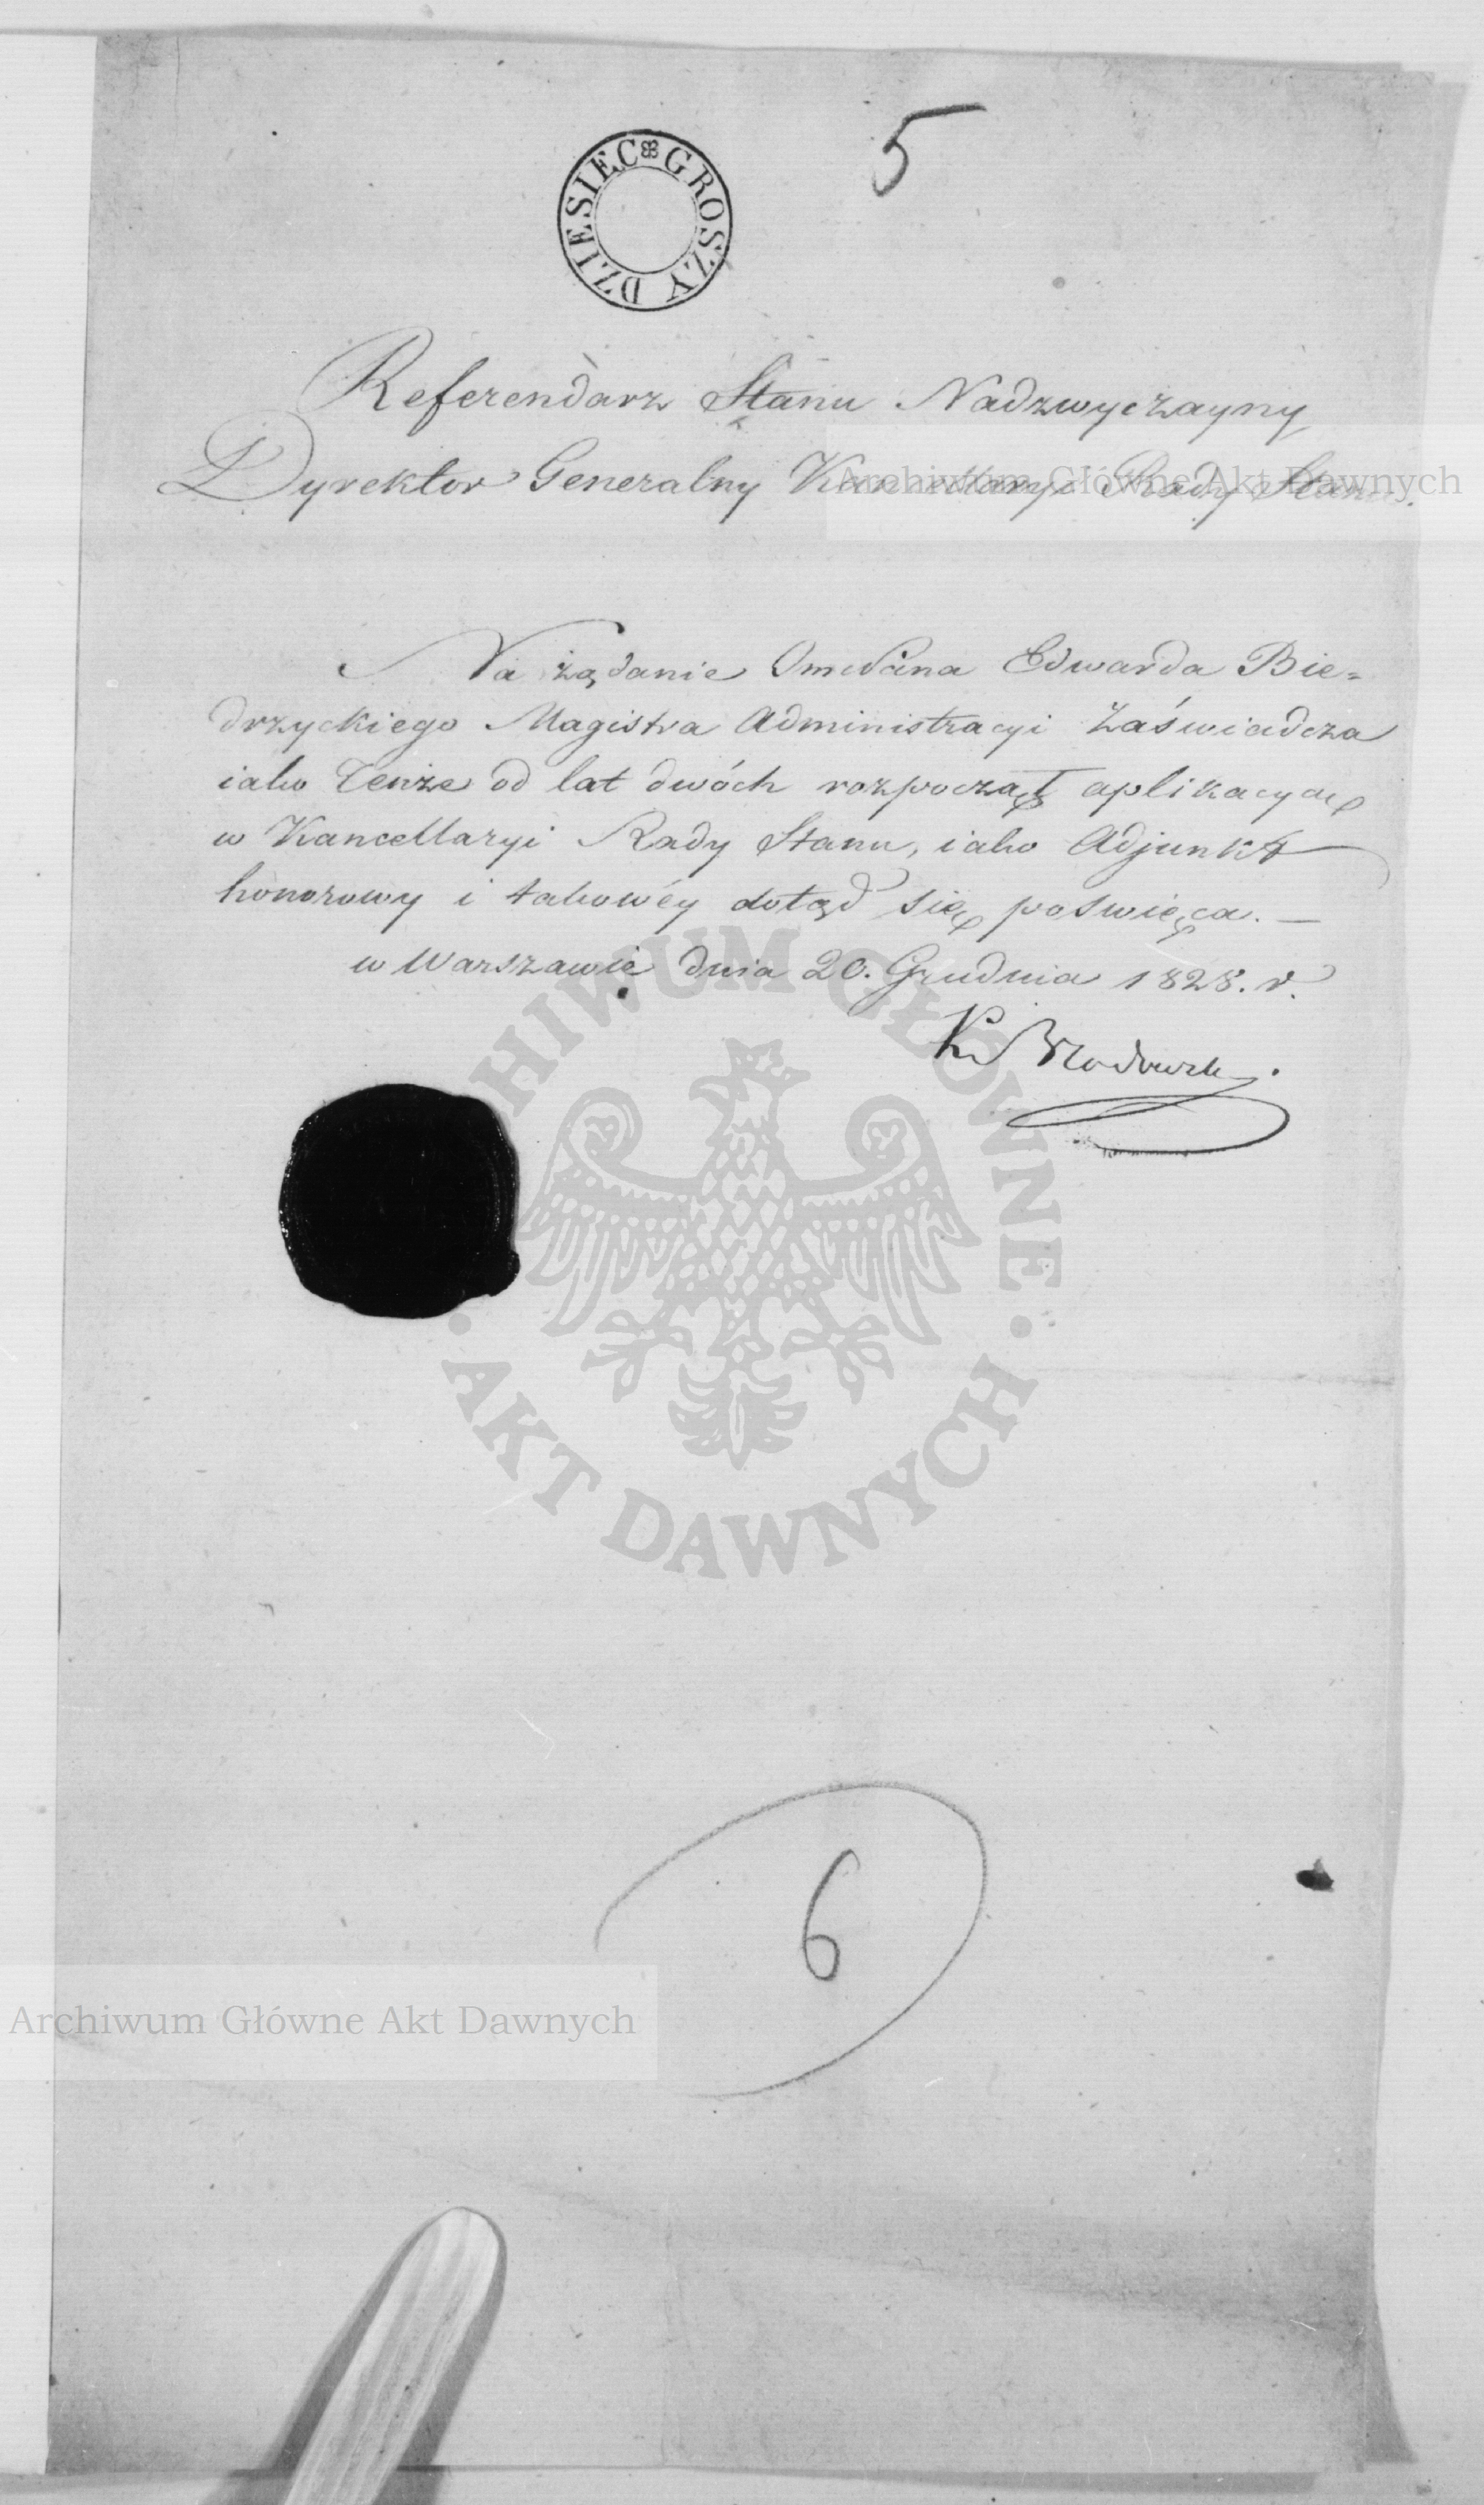 5
DZIESIĘC GROSZY
Referendarz Stanu Nadzwyczayny
Dyrektor Generalny Kancellaryi Rady Stanu.
Archiwum Główne Akt Dawnych
Na żądanie Edwarda Bie=
drzyckiego Magistra Administracyi Zaświadcza
iako Tenże od lat dwóch rozpoczął aplikacyą
w Kancellaryi Rady Stanu, iako Adjunkt
honorowy i takowéy dotąd się poswięca. —
w Warszawie dnia 20. Grudnia 1828. r.
ARCHIWUM GŁÓWNE
AKT DAWNYCH
6
Archiwum Główne Akt Dawnych